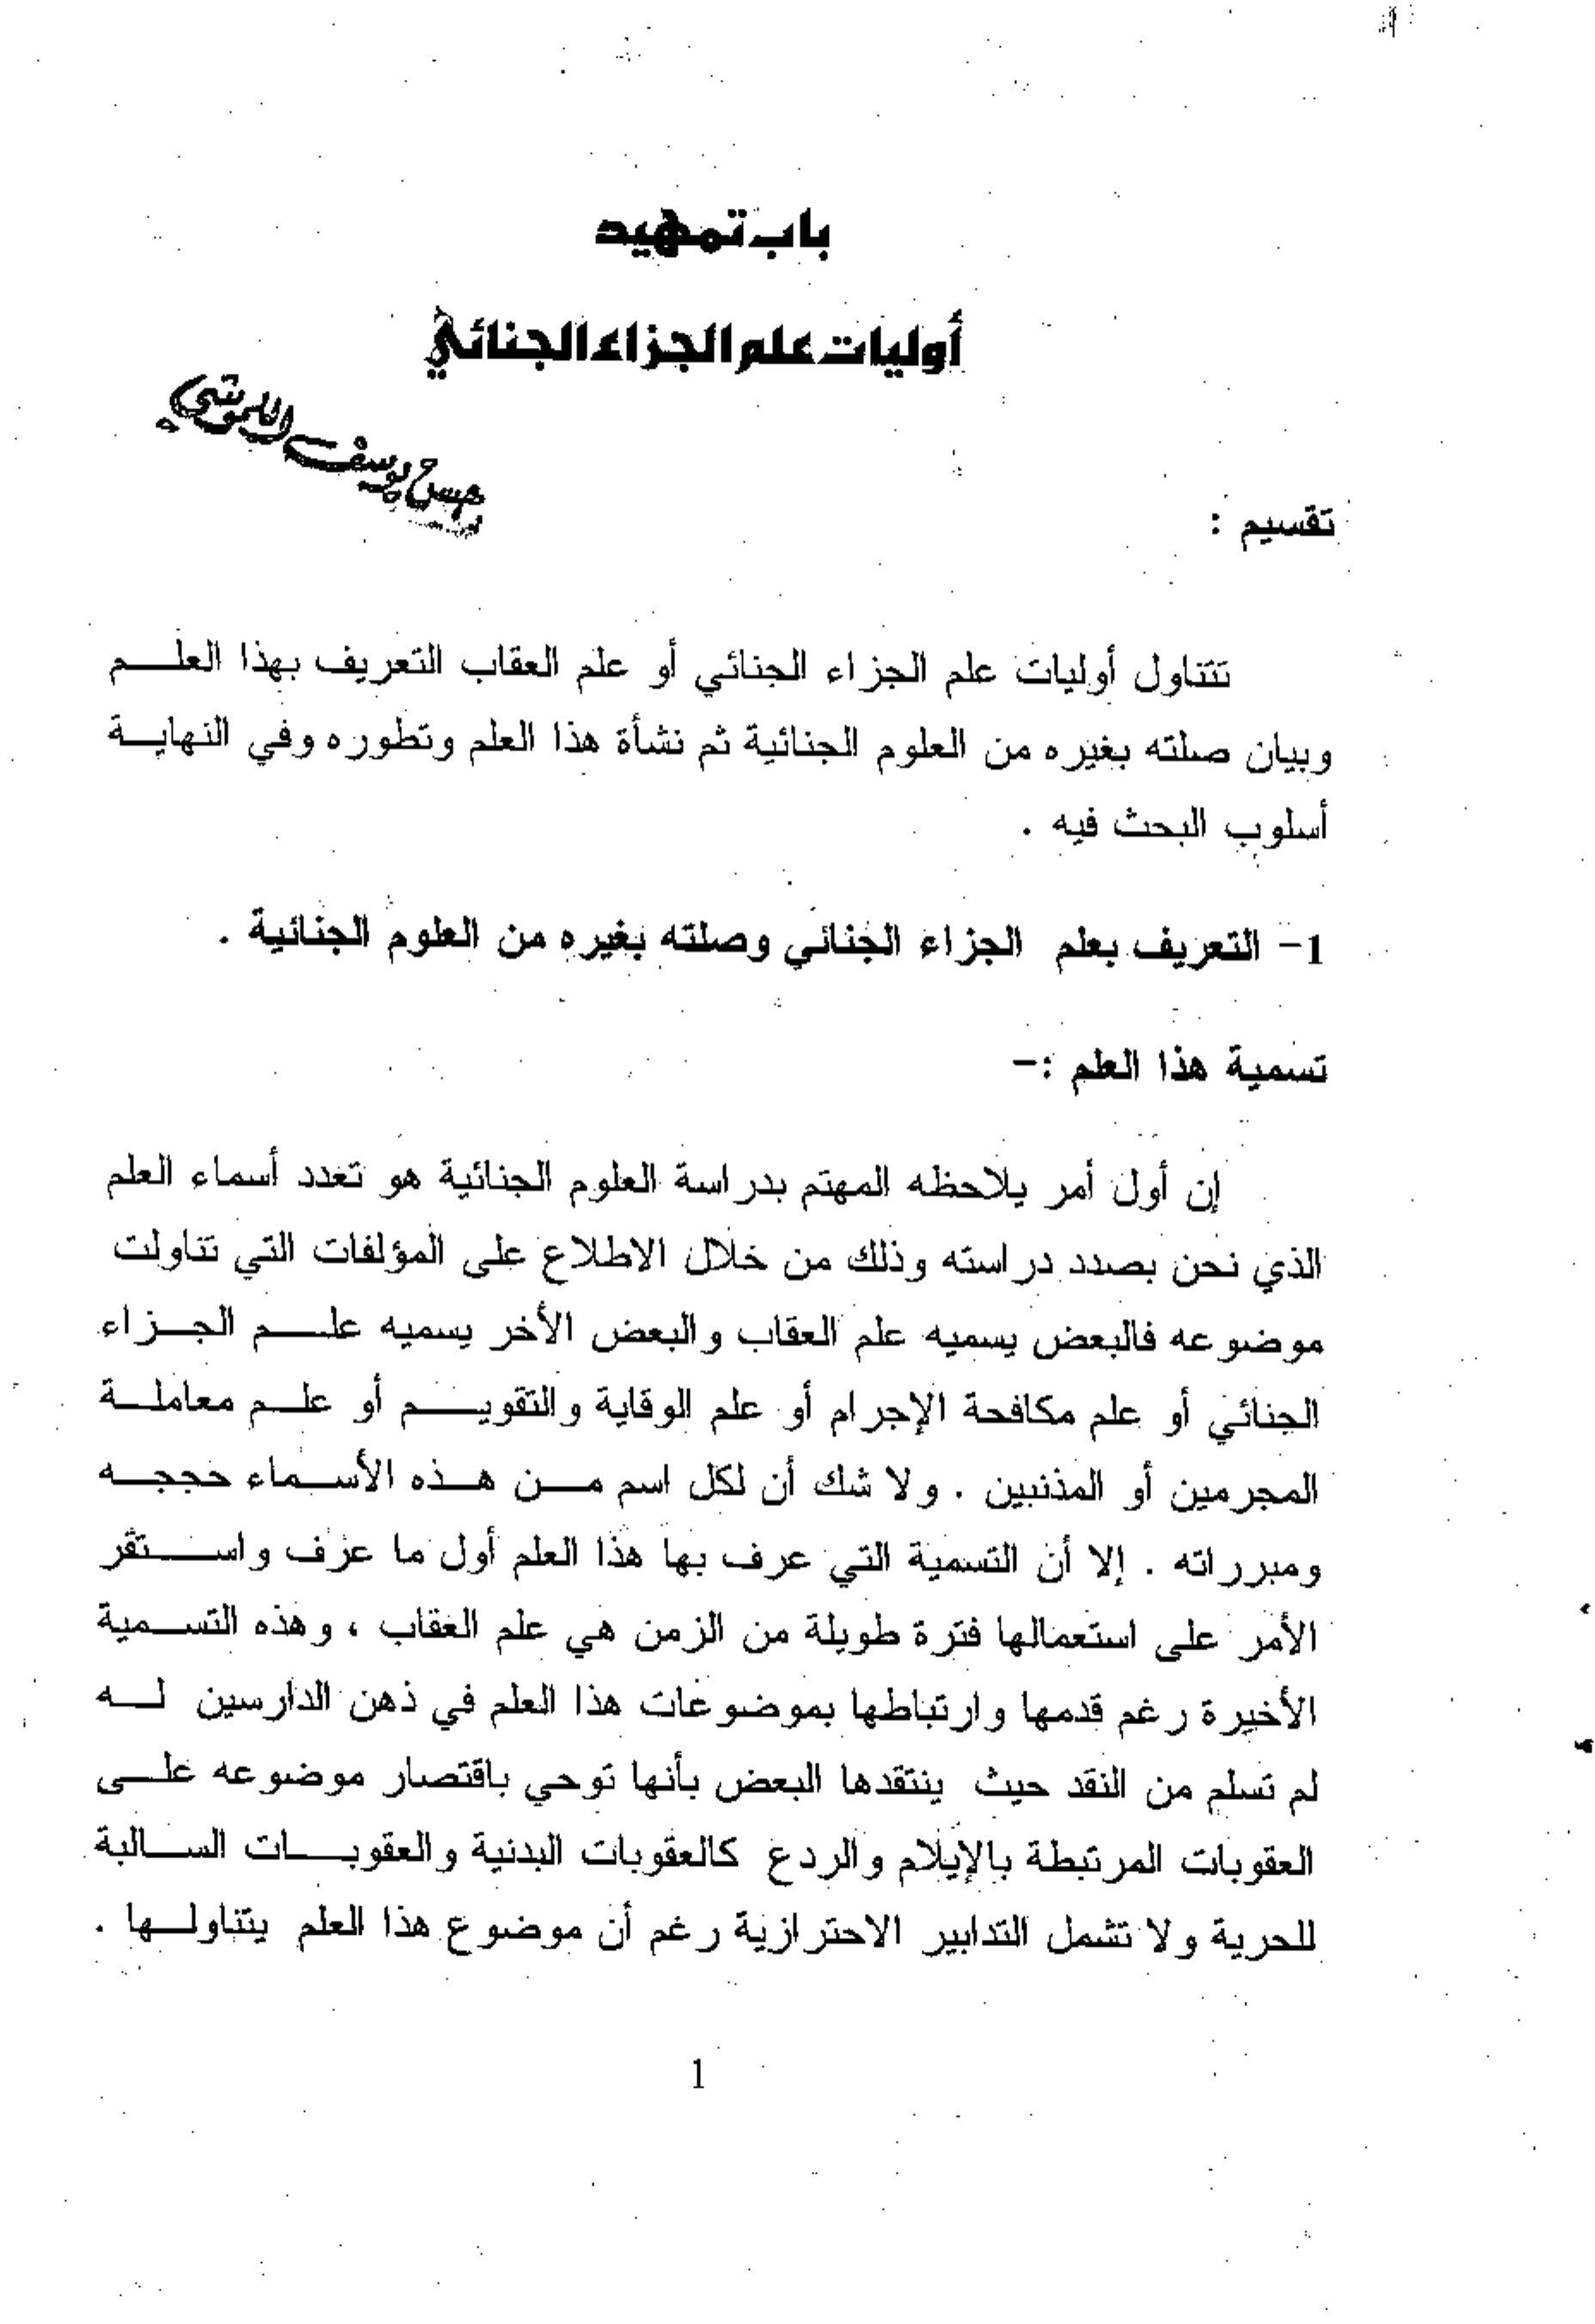 باب تمهيد
أوليات علم الجزاء الجنائي
حسن يوسف
تقسيم :
تتناول أوليات علم الجزاء الجنائي أو علم العقاب التعريف بهذا العلم
وبيان صلته بغيره من العلوم الجنائية ثم نشأة هذا العلم وتطوره وفي النهاية
أسلوب البحث فيه .
1- التعريف بعلم الجزاء الجنائي وصلته بغيره من العلوم الجنائية .
تسمية هذا العلم :-
إن أول أمر يلاحظه المهتم بدراسة العلوم الجنائية هو تعدد أسماء العلم
الذي نحن بصدد دراسته وذلك من خلال الاطلاع على المؤلفات التي تناولت
موضوعه فالبعض يسميه علم العقاب والبعض الأخر يسميه علم الجزاء
الجنائي أو علم مكافحة الإجرام أو علم الوقاية والتقويم أو علم معاملة
المجرمين أو المذنبين . ولا شك أن لكل اسم من هذه الأسماء حججه
ومبرراته . إلا أن التسمية التي عرف بها هذا العلم أول ما عرف واستقر
الأمر على استعمالها فترة طويلة من الزمن هي علم العقاب ، وهذه التسمية
الأخيرة رغم قدمها وارتباطها بموضوعات هذا العلم في ذهن الدارسين له
لم تسلم من النقد حيث ينتقدها البعض بأنها توحي باقتصار موضوعه على
العقوبات المرتبطة بالإيلام والردع كالعقوبات البدنية والعقوبات السالبة
للحرية ولا تشمل التدابير الاحترازية رغم أن موضوع هذا العلم يتناولها .
1